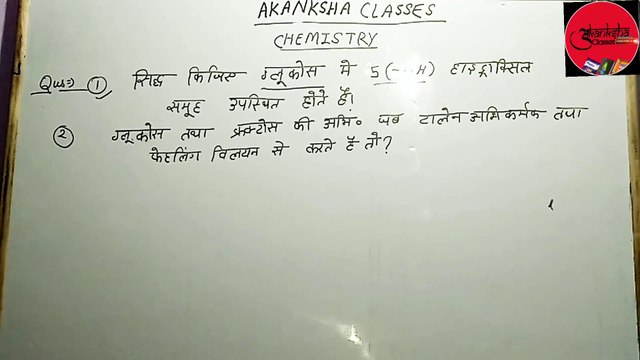 AKANKSHA CLASSES
CHEMISTRY
Akanksha
Classes
Qus:- 1 सिद्ध किजिए ग्लूकोस मे 5 (-OH) हाइड्राक्सिल
समूह उपस्थित होते हैं।
2 ग्लूकोस तथा फ्रक्टोस की अभि० जब टालेन अभिकर्मक तथा
फेहलिंग विलयन से करते हैं तो?